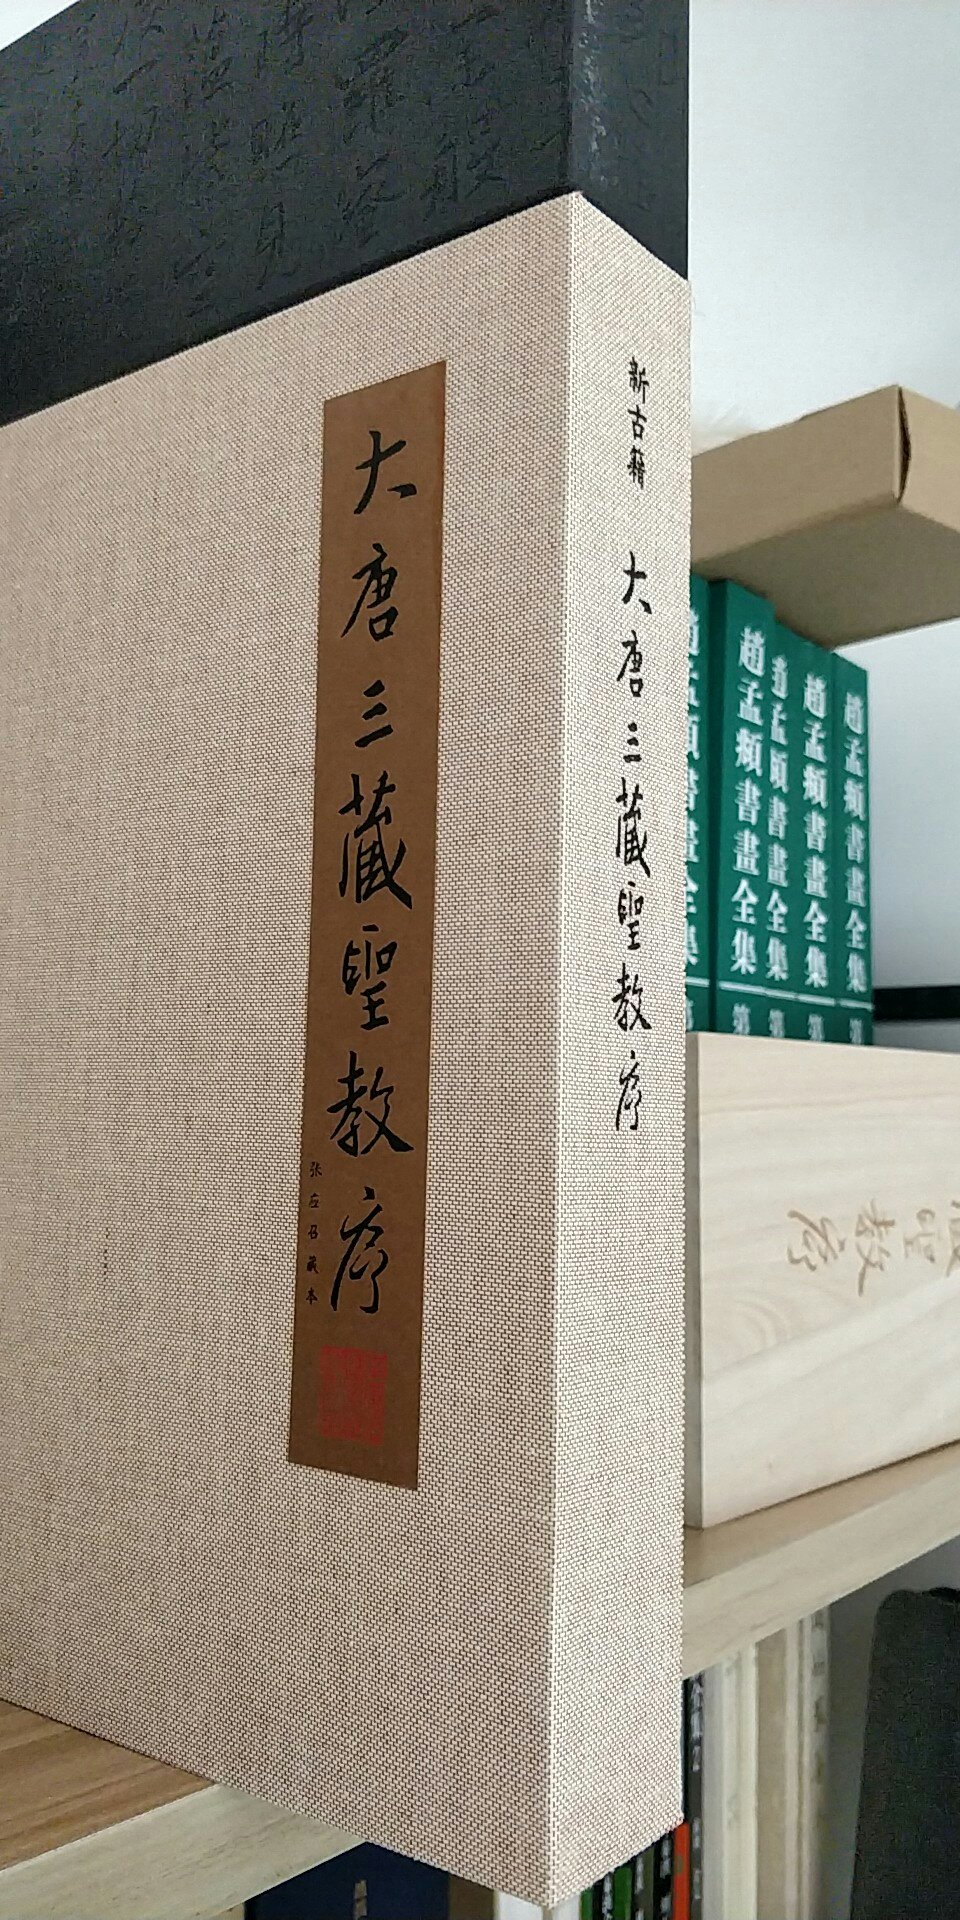 大唐三藏聖教序
张应召藏本
新古籍 大唐三藏聖教序
趙孟頫書畫全集 第
趙孟頫書畫全集 第
趙孟頫書畫全集 第
趙孟頫書畫全集 第
趙孟頫書畫全集 第
聖教序